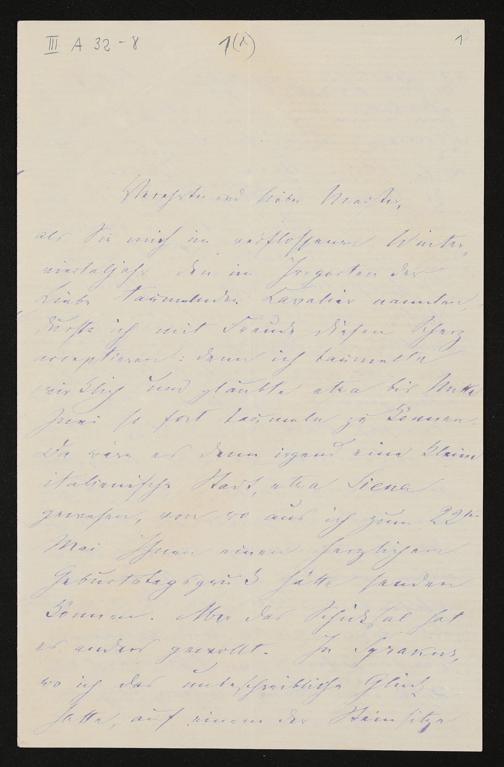 III A 32-8
1(x)
1
Verehrter und lieber Meister,
als Sie mich im verflossenen Winter-
vierteljahr den im Irrgarten der
Liebe taumelnden Cavalier nannten,
durfte ich mit Freude diesen Scherz
acceptieren: denn ich taumelte
wirklich und glaubte etwa bis Mitte
Juni so fort taumeln zu können.
Da wäre es denn irgend eine kleine
italienische Stadt, etwa Siena
gewesen, von wo aus ich zum 22ten
Mai Ihnen einen herzlichen
Geburtstagsgruß hätte senden
können. Aber das Schicksal hat
es anders gewollt. In Syrakus,
wo ich das unbeschreibliche Glück
hatte, auf einem der Steinsitze